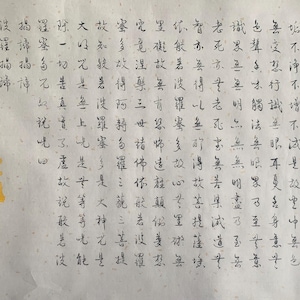 垢不淨不增不減是故空中無色
無受想行識無眼耳鼻舌身意無
色聲香味觸法無眼界乃至無意
識界無無明亦無無明盡乃至無
老死亦無老死盡無苦集滅道無
智亦無得以無所得故菩提薩埵
依般若波羅蜜多故心無罣礙無
罣礙故無有恐怖遠離顛倒夢想
究竟涅槃三世諸佛依般若波羅
蜜多故得阿耨多羅三藐三菩提
故知般若波羅蜜多是大神咒是
大明咒是無上咒是無等等咒能
除一切苦真實不虛故說般若波
羅蜜多咒即說咒曰
揭諦揭諦
波羅揭諦